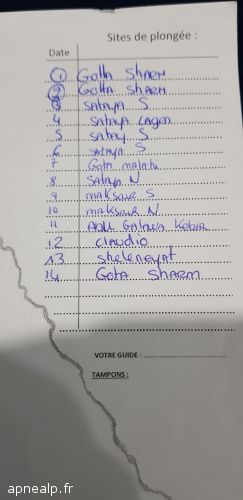 Sites de plongée :
Date
1 Gotta Sharm
2 Gotta Sharm
3 Sataya S
4 Sataya Lagon
5 Satay S
6 Sataya S
7 Gota malahi
8 Sataya N
9 maksour S
10 maksour N
11 Abu Galawa Kebir
12 claudio
13 sheleneyat
14 Gota Sharm
VOTRE GUIDE :
TAMPONS :
apnealp.fr